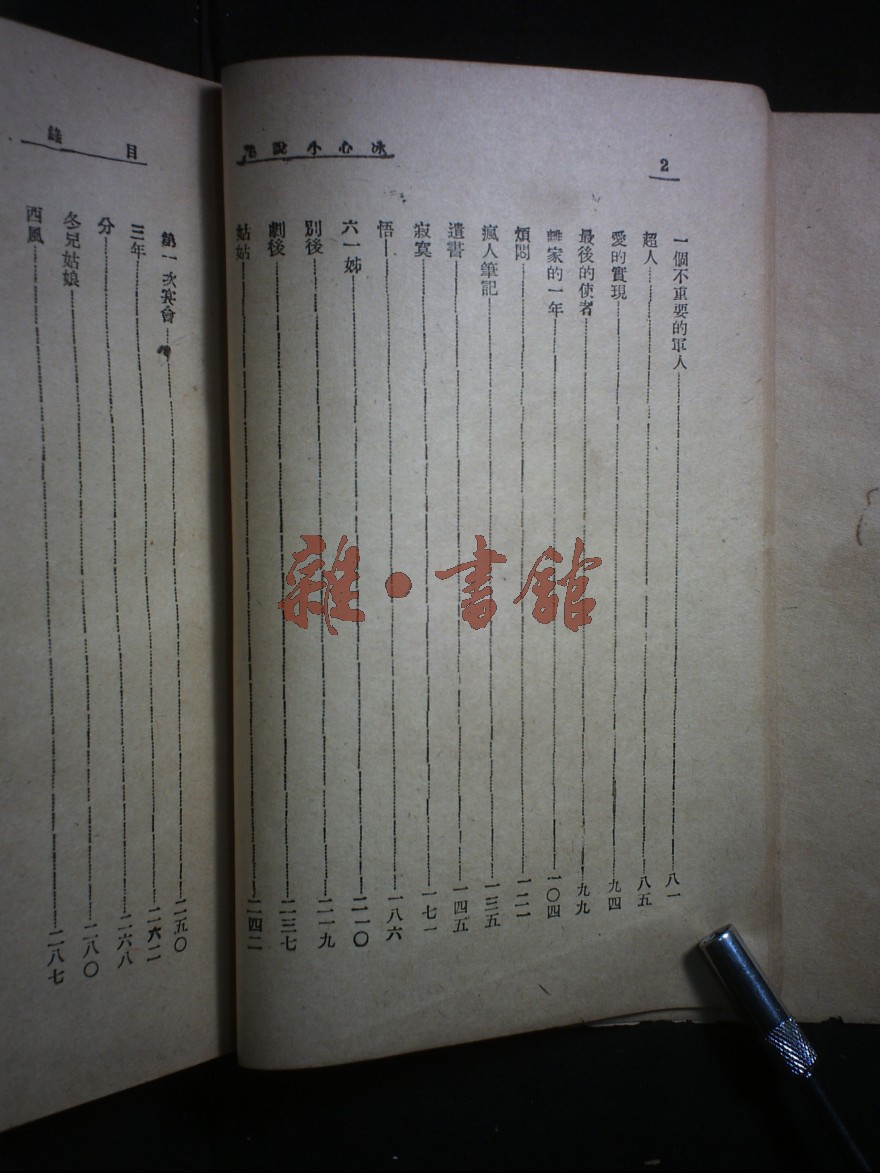 2
冰心小說集
一個不重要的軍人……八一
超人……八五
愛的實現……九四
最後的使者……九九
離家的一年……一〇四
煩悶……一二一
瘋人筆記……一三五
遺書……一四五
寂寞……一七一
悟……一八六
六一姊……二一〇
別後……二一九
劇後……二三七
姑姑……二四二
目錄
第一次宴會……二五〇
三年……二六二
分……二六八
冬兒姑娘……二八〇
西風……二八七
雜·書館